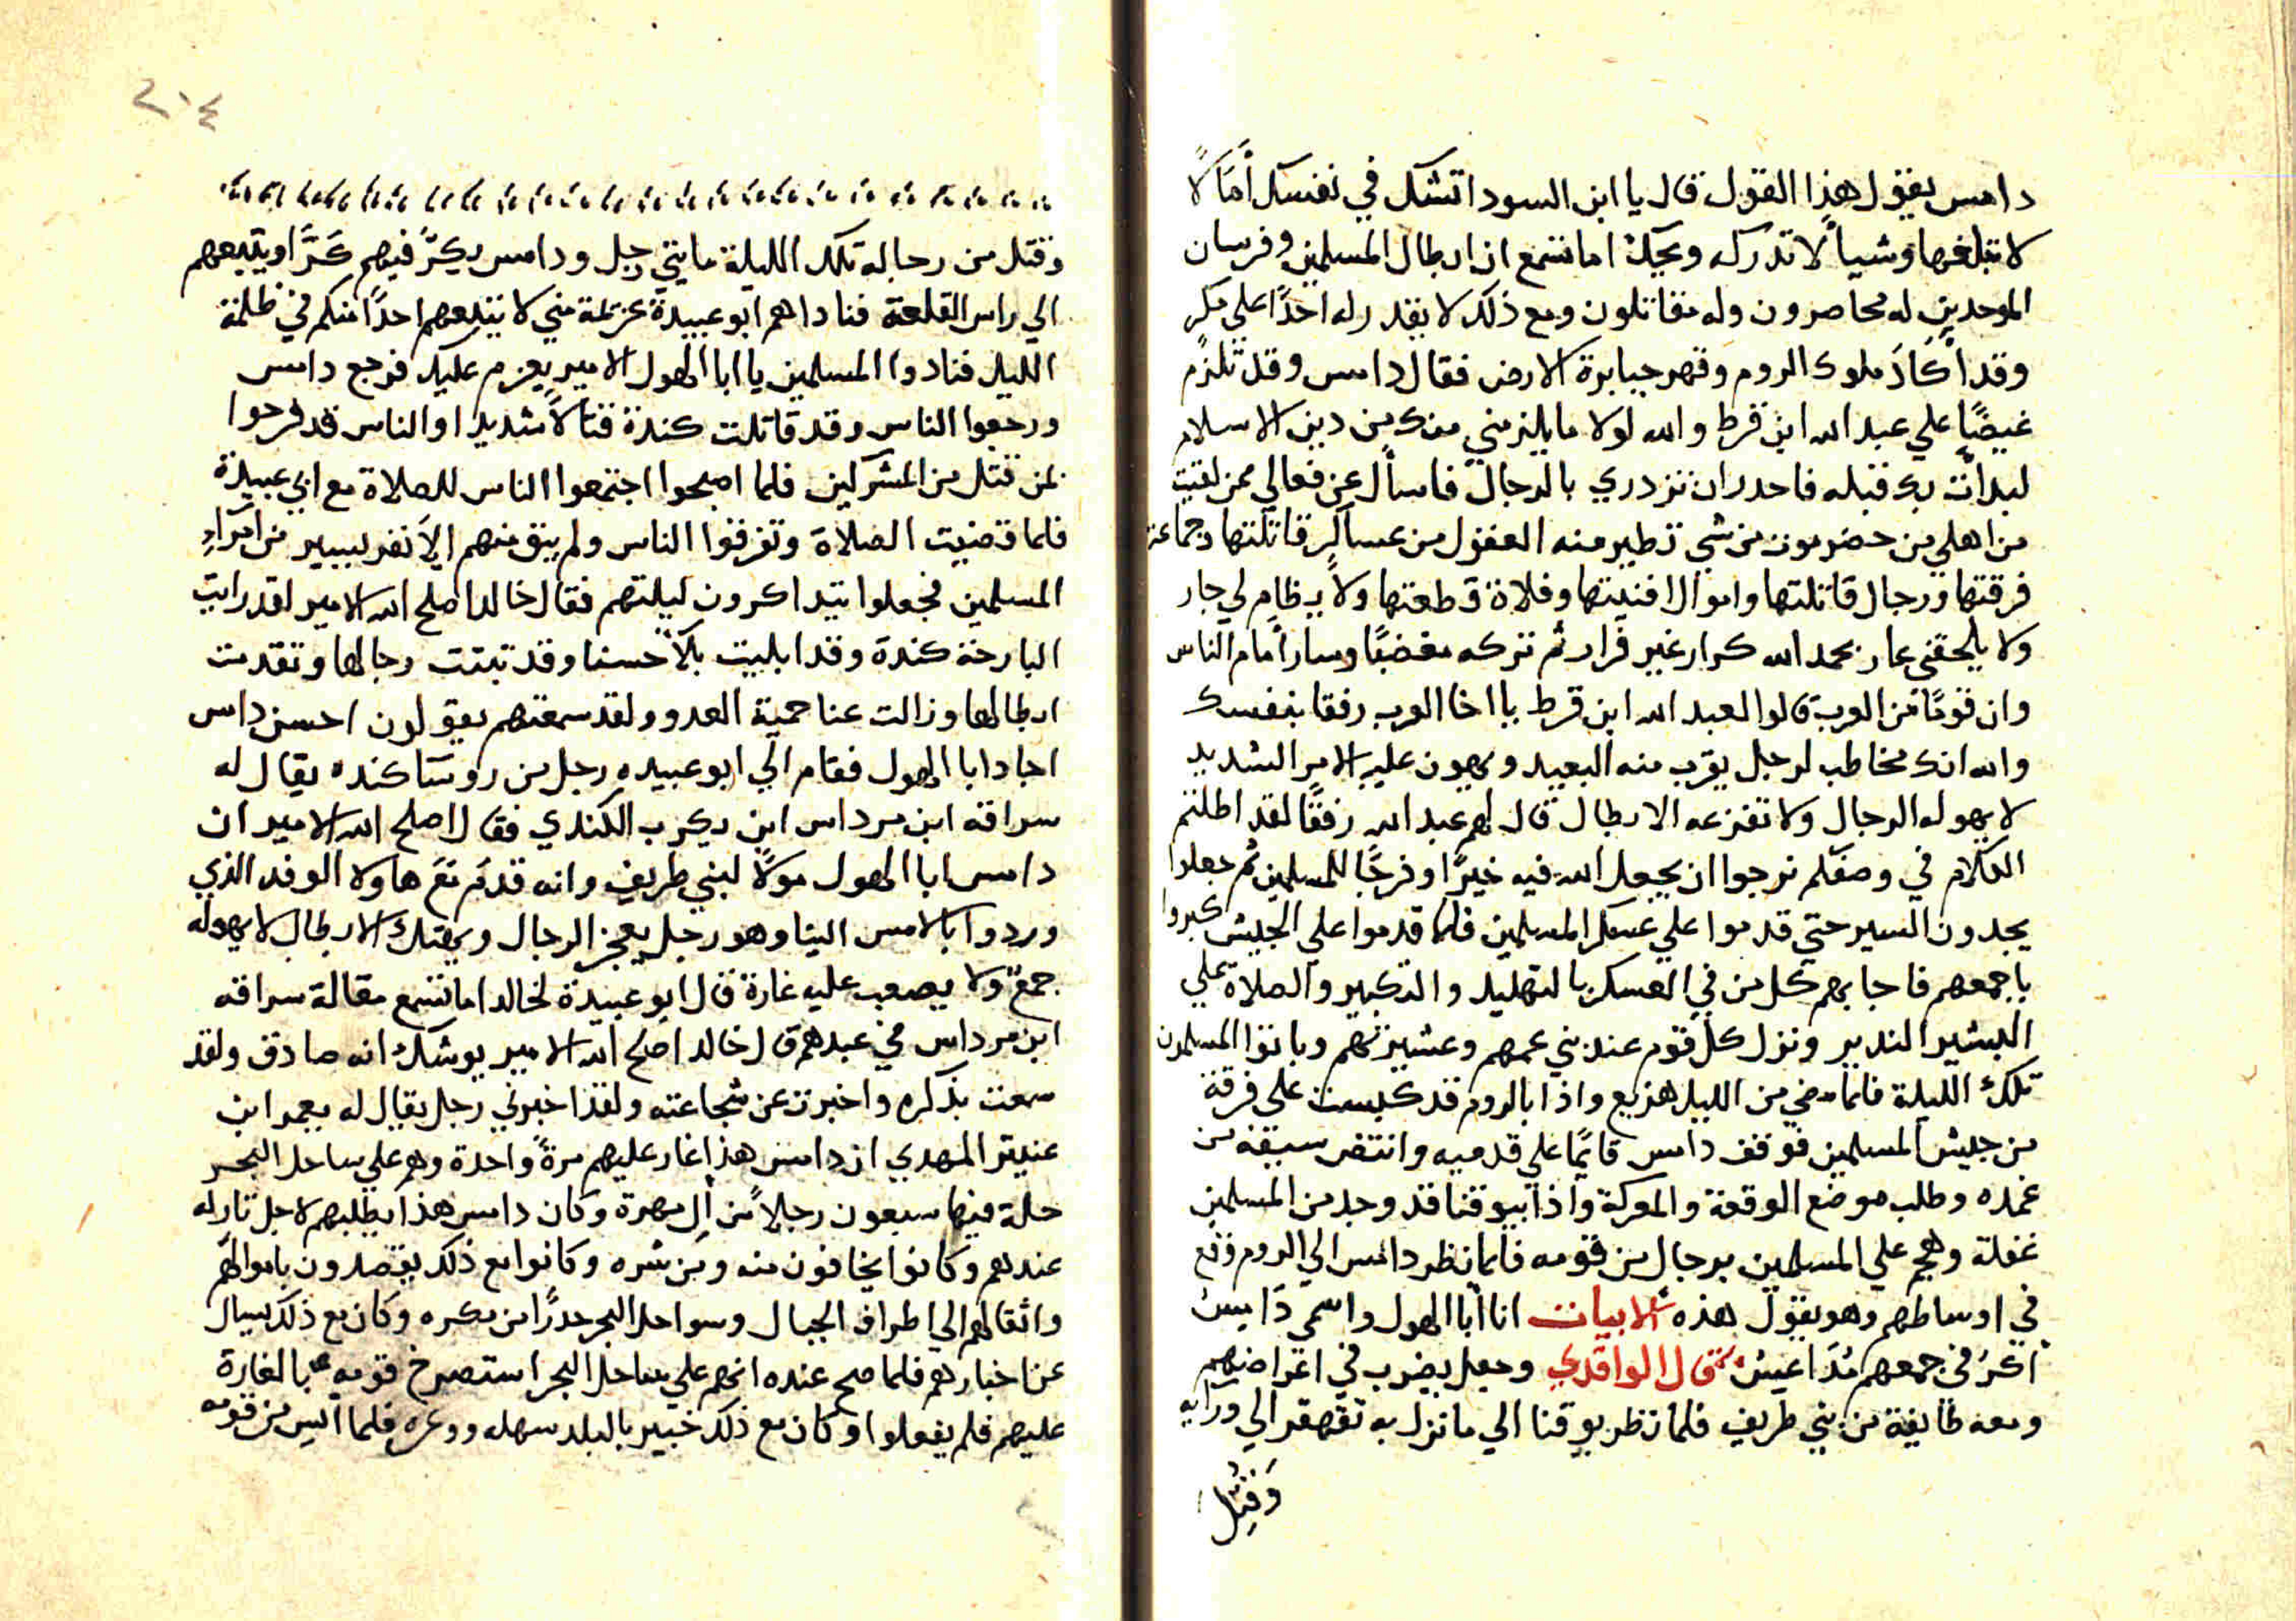 دامس يقول هذا القول قال يا ابن السودا تشكل في نفسك أمالًا
لا تبلغها وشياً لا تدركه ويحك اما تسمع ان ابطال المسلمين وفرسان
الموحدين له محاصرون وله مقاتلون ومع ذلك لا يقدر له احدًا علي مكر
وقد أكَادَ ملوك الروم وقهر جبابرة الارض فقال دامس وقد تلزم
غيضًا علي عبد الله ابن قرط والله لولا ما يلزمني منك من دين الاسلام
لبدأت بك قبله فاحدر ان تزدري بالرجال فاسأل عن فعالي ممن لقيت
من اهلي من حضرموت من شي تطير منه العقول من عساكر قاتلتها وجماعة
فرقتها ورجال قاتلتها واموال افنيتها وفلاة قطعتها ولا يرظام لي جار
ولا يلحقني عار بحمد الله كرار غير فرار ثم تركه مغضبًا وسار أمام الناس
وان قومًا من العرب قالوا لعبد الله ابن قرط يا اخا العرب رفقا بنفسك
والله انك مخاطب لرجل يقرب منه البعيد ويهون عليه الامر الشديد
لا يهوله الرجال ولا تفزعه الابطال قال لهم عبد الله رفقًا لقد اطلتم
الكلام في وصفكم نرجوا ان يجعل الله فيه خيرًا وفرجًا للمسلمين ثم جعلوا
يجدون السير حتي قدموا علي عسكر المسلمين فلما قدموا علي الجيش كبروا
باجمعهم فاجابهم كل من في العسكر بالتهليل والتكبير والصلاة علي
البشير الندير ونزل كل قوم عند بني عمهم وعشيرتهم وباتوا المسلمون
تلك الليلة فلما مضي من الليل هزيع واذا بالروم قد كبست على فرقة
من جيش المسلمين فوقف دامس قايمًا علي قدميه وانتضى سيفه من
غمده وطلب موضع الوقعة والمعركة واذا بيوقنا قد وجد من المسلمين
غفلة وهجم علي المسلمين برجال من قومه فلما نظر دامس الي الروم وقع
في اوساطهم وهو يقول هذه الابيات انا أبا الهول واسمي دَامِسُ
أكرُ في جمعهم مُدَاعِسُ قال الواقدي وجعل يضرب في اعراضهم
ومعه طايفة من بني طريف فلما نظر يوقنا الي ما نزل به تقهقر الي ورايه
وقتل
٢٠٤
وقتل من رجاله تلك الليلة مايتي رجل ودامس يكرّ فيهم كَرًّا ويتبعهم
الي راس القلعة فناداهم ابو عبيدة عزيمة مني لا يتبعهم احدًا منكم في ظلمة
الليل فنادوا المسلمين يا ابا الهول الامير يعزم عليك فرجع دامس
ورجعوا الناس وقد قاتلت كندة قتالًا شديدا والناس قد فرحوا
بمن قتل من المشركين فلما اصبحوا اجتمعوا الناس للصلاة مع ابي عبيدة
فلما قضيت الصلاة وتفرقوا الناس ولم يبق منهم الا نفر يسير من أمراءِ
المسلمين فجعلوا يتداكرون ليلتهم فقال خالد اصلح الله الامير لقد رايت
البارحة كندة وقد ابليت بلآً حسنا وقد تبتت رجالها وتقدمت
ابطالها وزالت عنا حمية العدو ولقد سمعتهم يقولون احسن دامس
اجاد ابا الهول فقام الي ابو عبيده رجل من روسا كنده يقال له
سراقه ابن مرداس ابن يكرب الكندي فقال اصلح الله الامير ان
دامس ابا الهول مولًا لبني طريف وانه قدم مَعَ هاولا الوفد الذي
وردوا بالامس الينا وهو رجل يعجز الرجال ويهتك الابطال لا يهوله
جمع ولا يصعب عليه غارة قال ابو عبيدة لخالد اما تسمع مقالة سراقه
ابن مرداس في عبدهم قال خالد اصلح الله الامير يوشك انه صادق ولقد
سمعت بذكره واخبرت عن شجاعته ولقد اخبرني رجل يقال له يعمر ابن
المهدي ان دامس هذا غار عليهم مرةً واحدة وهم علي ساحل البحر
حلة فيها سبعون رجلاً من أل مهرة وكان دامس هذا يطلبهم لاجل تار له
عندهم وكانوا يخافون منه ومن شره وكانوا مع ذلك يقصدون باموالهم
واثقالهم الي اطراف الجبال وسواحل البحر حدرًا من مكره وكان مع ذلك يسال
عن اخبارهم فلما صح عنده انهم علي ساحل البحر استصرخ قومه بالغارة
عليهم فلم يفعلوا وكان مع ذلك خبير بالبلد سهله ووعره فلما أيس من قومه